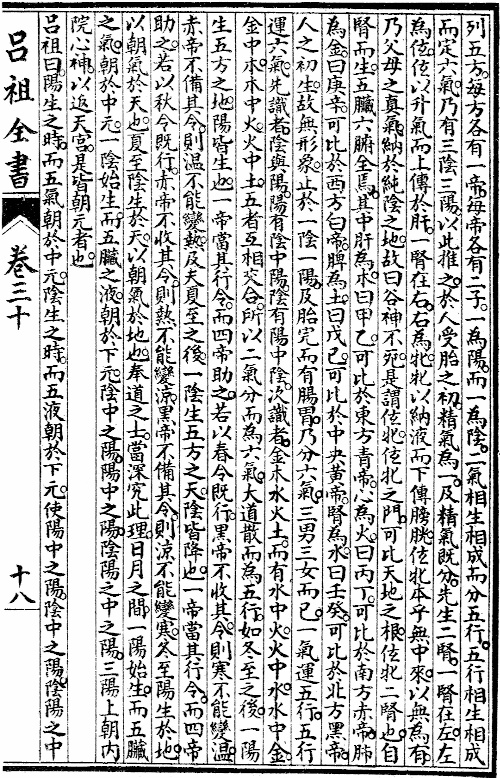 列五方每方各有一帝每帝各有二子一為陽而一為陰二氣相生相成而分五行五行相生相成
而定六氣乃有三陰三陽以此推之於人受胎之初精氣為一及精氣既分先生二腎一腎在左左
為伭伭以升氣而上傳於肝一腎在右右為牝牝以納液而下傳膀胱伭牝本乎無中來以無為有
乃父母之真氣納於純陰之地故曰谷神不死是謂伭牝伭牝之門可比天地之根伭牝二腎也自
腎而生五臟六腑全焉其中肝為木曰甲乙可比於東方青帝心為火曰丙丁可比於南方赤帝肺
為金曰庚辛可比於西方白帝脾為土曰戊己可比於中央黃帝腎為水曰壬癸可比於北方黑帝
人之初生故無形象止於一陰一陽及胎完而有腸胃乃分六氣三男三女而已一氣運五行五行
運六氣先識者陰與陽陽有陰中陽陰有陽中陰次識者金木水火土而有水中火火中水水中金
金中木木中火火中土五者互相交合所以二氣分而為六氣大道散而為五行如冬至之後一陽
生五方之地陽皆生也一帝當其行令而四帝助之若以春令既行黑帝不收其令則寒不能變溫
赤帝不備其令則溫不能變熱及夫夏至之後一陰生五方之天陰皆降也一帝當其行令而四帝
助之若以秋令既行赤帝不收其令則熱不能變涼黑帝不備其令則涼不能變寒冬至陽生於地
以朝氣於天也夏至陰生於天以朝氣於地也奉道之士當深究此理日月之間一陽始生而五臟
之氣朝於中元一陰始生而五臟之液朝於下元陰中之陽陽中之陽陰陽之中之陽三陽上朝內
院心神以返天宮是皆朝元者也
呂祖曰陽生之時而五氣朝於中元陰生之時而五液朝於下元使陽中之陽陰中之陽陰陽之中
呂祖全書 卷三十 十八